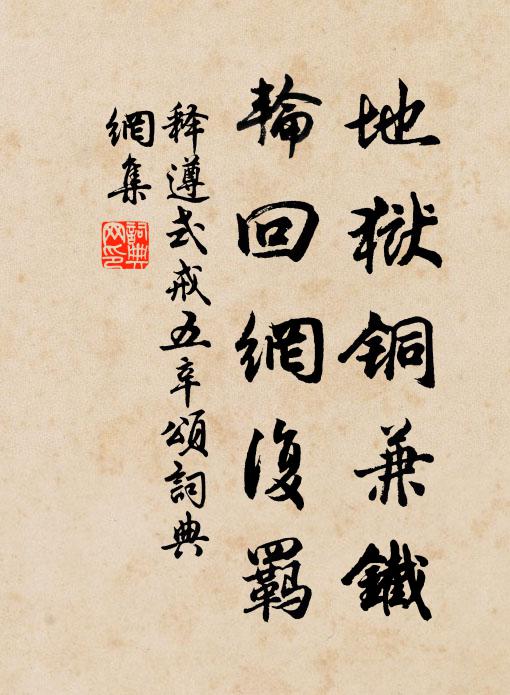 地獄銅兼鐵
輪回網復羈
释遵式戒五辛頌詞典
網集
詞典
网印